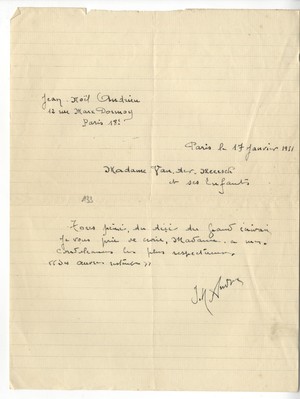 Jean-Noël Andrieu
12 rue Marx Dormoy
Paris 18e
Paris le 17 janvier 1951
Madame Van der Meersch
et ses Enfants
Très peiné, du décès du Grand écrivain
je vous prie de croire, Madame, a mes
condoléances les plus respectueuses